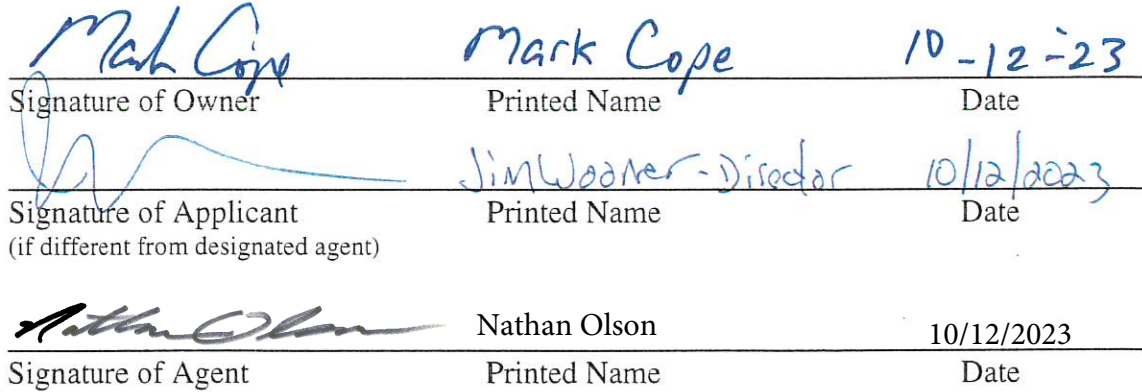 Mark Cope Mark Cope 10-12-23
Signature of Owner Printed Name Date
Jim Woorner - Director 10/12/2023
Signature of Applicant Printed Name Date
(if different from designated agent)
Nathan Olson Nathan Olson 10/12/2023
Signature of Agent Printed Name Date